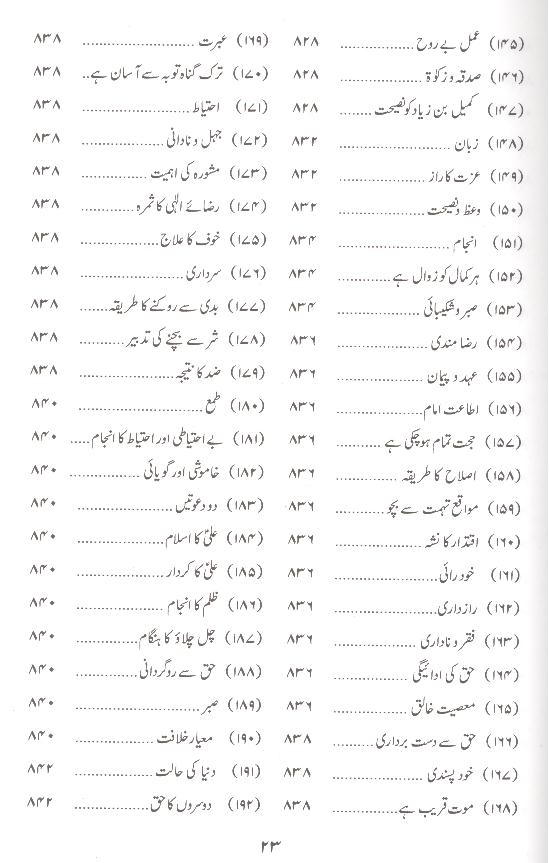 (۱۴۵) عمل بے روح ................ ۸۲۸
(۱۴۶) صدقہ و زکوٰۃ ................ ۸۲۸
(۱۴۷) کمیل بن زیاد کو نصیحت ........ ۸۲۸
(۱۴۸) زبان ................ ۸۳۲
(۱۴۹) عزت کا راز ................ ۸۳۲
(۱۵۰) وعظ و نصیحت ................ ۸۳۲
(۱۵۱) انجام ................ ۸۳۴
(۱۵۲) ہر کمال کو زوال ہے ............ ۸۳۴
(۱۵۳) صبر و شکیبائی ................ ۸۳۴
(۱۵۴) رضا مندی ................ ۸۳۶
(۱۵۵) عہد و پیمان ................ ۸۳۶
(۱۵۶) اطاعت امام ................ ۸۳۶
(۱۵۷) حجت تمام ہو چکی ہے .......... ۸۳۶
(۱۵۸) اصلاح کا طریقہ .............. ۸۳۶
(۱۵۹) مواقع تہمت سے بچو ............ ۸۳۶
(۱۶۰) اقتدار کا نشہ ................ ۸۳۶
(۱۶۱) خود رائی ................ ۸۳۶
(۱۶۲) رازداری ................ ۸۳۶
(۱۶۳) فقر و ناداری ................ ۸۳۶
(۱۶۴) حق کی ادائیگی ................ ۸۳۶
(۱۶۵) معصیت خالق ................ ۸۳۶
(۱۶۶) حق سے دست برداری .......... ۸۳۸
(۱۶۷) خود پسندی ................ ۸۳۸
(۱۶۸) موت قریب ہے ................ ۸۳۸
(۱۶۹) عبرت ................ ۸۳۸
(۱۷۰) ترک گناہ توبہ سے آسان ہے .. ۸۳۸
(۱۷۱) احتیاط ................ ۸۳۸
(۱۷۲) جہل و نادانی ................ ۸۳۸
(۱۷۳) مشورہ کی اہمیت ............ ۸۳۸
(۱۷۴) رضائے الٰہی کا ثمرہ ............ ۸۳۸
(۱۷۵) خوف کا علاج ................ ۸۳۸
(۱۷۶) سرداری ................ ۸۳۸
(۱۷۷) بدی سے روکنے کا طریقہ ....... ۸۳۸
(۱۷۸) شر سے بچنے کی تدبیر .......... ۸۳۸
(۱۷۹) ضد کا نتیجہ ................ ۸۳۸
(۱۸۰) طمع ................ ۸۴۰
(۱۸۱) بے احتیاطی اور احتیاط کا انجام ..... ۸۴۰
(۱۸۲) خاموشی اور گویائی ............ ۸۴۰
(۱۸۳) دو دعوتیں ................ ۸۴۰
(۱۸۴) علیؑ کا اسلام ................ ۸۴۰
(۱۸۵) علیؑ کا کردار ................ ۸۴۰
(۱۸۶) ظلم کا انجام ................ ۸۴۰
(۱۸۷) چل چلاؤ کا ہنگام ............ ۸۴۰
(۱۸۸) حق سے روگردانی ............ ۸۴۰
(۱۸۹) صبر ................ ۸۴۰
(۱۹۰) معیار خلافت ................ ۸۴۰
(۱۹۱) دنیا کی حالت ................ ۸۴۲
(۱۹۲) دوسروں کا حق ................ ۸۴۲
۲۳